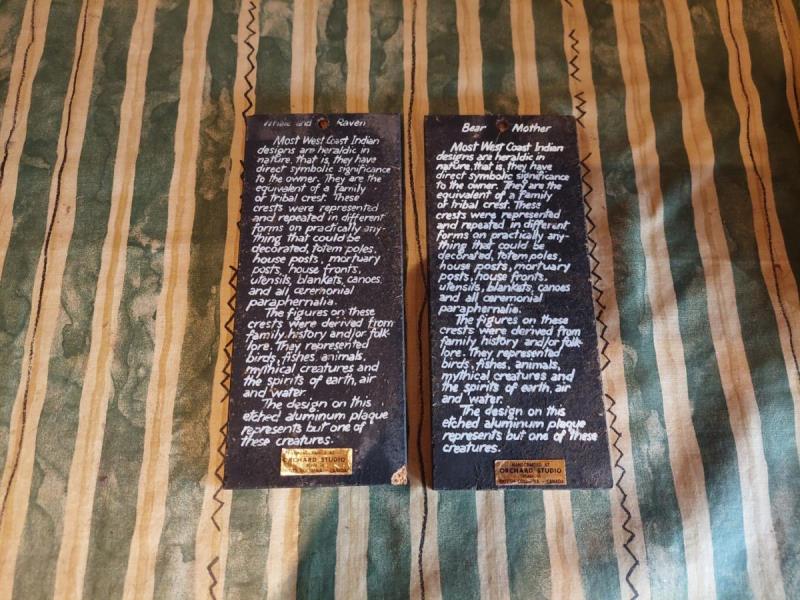 Whale and Raven
Most West Coast Indian
designs are heraldic in
nature, that is, they have
direct symbolic significance
to the owner. They are the
equivalent of a family
or tribal crest. These
crests were represented
and repeated in different
forms on practically any-
thing that could be
decorated, totem poles,
house posts, mortuary
posts, house fronts,
utensils, blankets, canoes
and all ceremonial
paraphernalia.
The figures on these
crests were derived from
family history and/or folk-
lore. They represented
birds, fishes, animals,
mythical creatures and
the spirits of earth, air
and water.
The design on this
etched aluminum plaque
represents but one of
these creatures.
ORCHARD STUDIO
CANADA
Bear Mother
Most West Coast Indian
designs are heraldic in
nature, that is, they have
direct symbolic significance
to the owner. They are the
equivalent of a family
or tribal crest. These
crests were represented
and repeated in different
forms on practically any-
thing that could be
decorated, totem poles,
house posts, mortuary
posts, house fronts,
utensils, blankets, canoes
and all ceremonial
paraphernalia.
The figures on these
crests were derived from
family history and/or folk-
lore. They represented
birds, fishes, animals,
mythical creatures and
the spirits of earth, air
and water.
The design on this
etched aluminum plaque
represents but one of these
creatures.
HANDCRAFTED AT
ORCHARD STUDIO
BRITISH COLUMBIA - CANADA